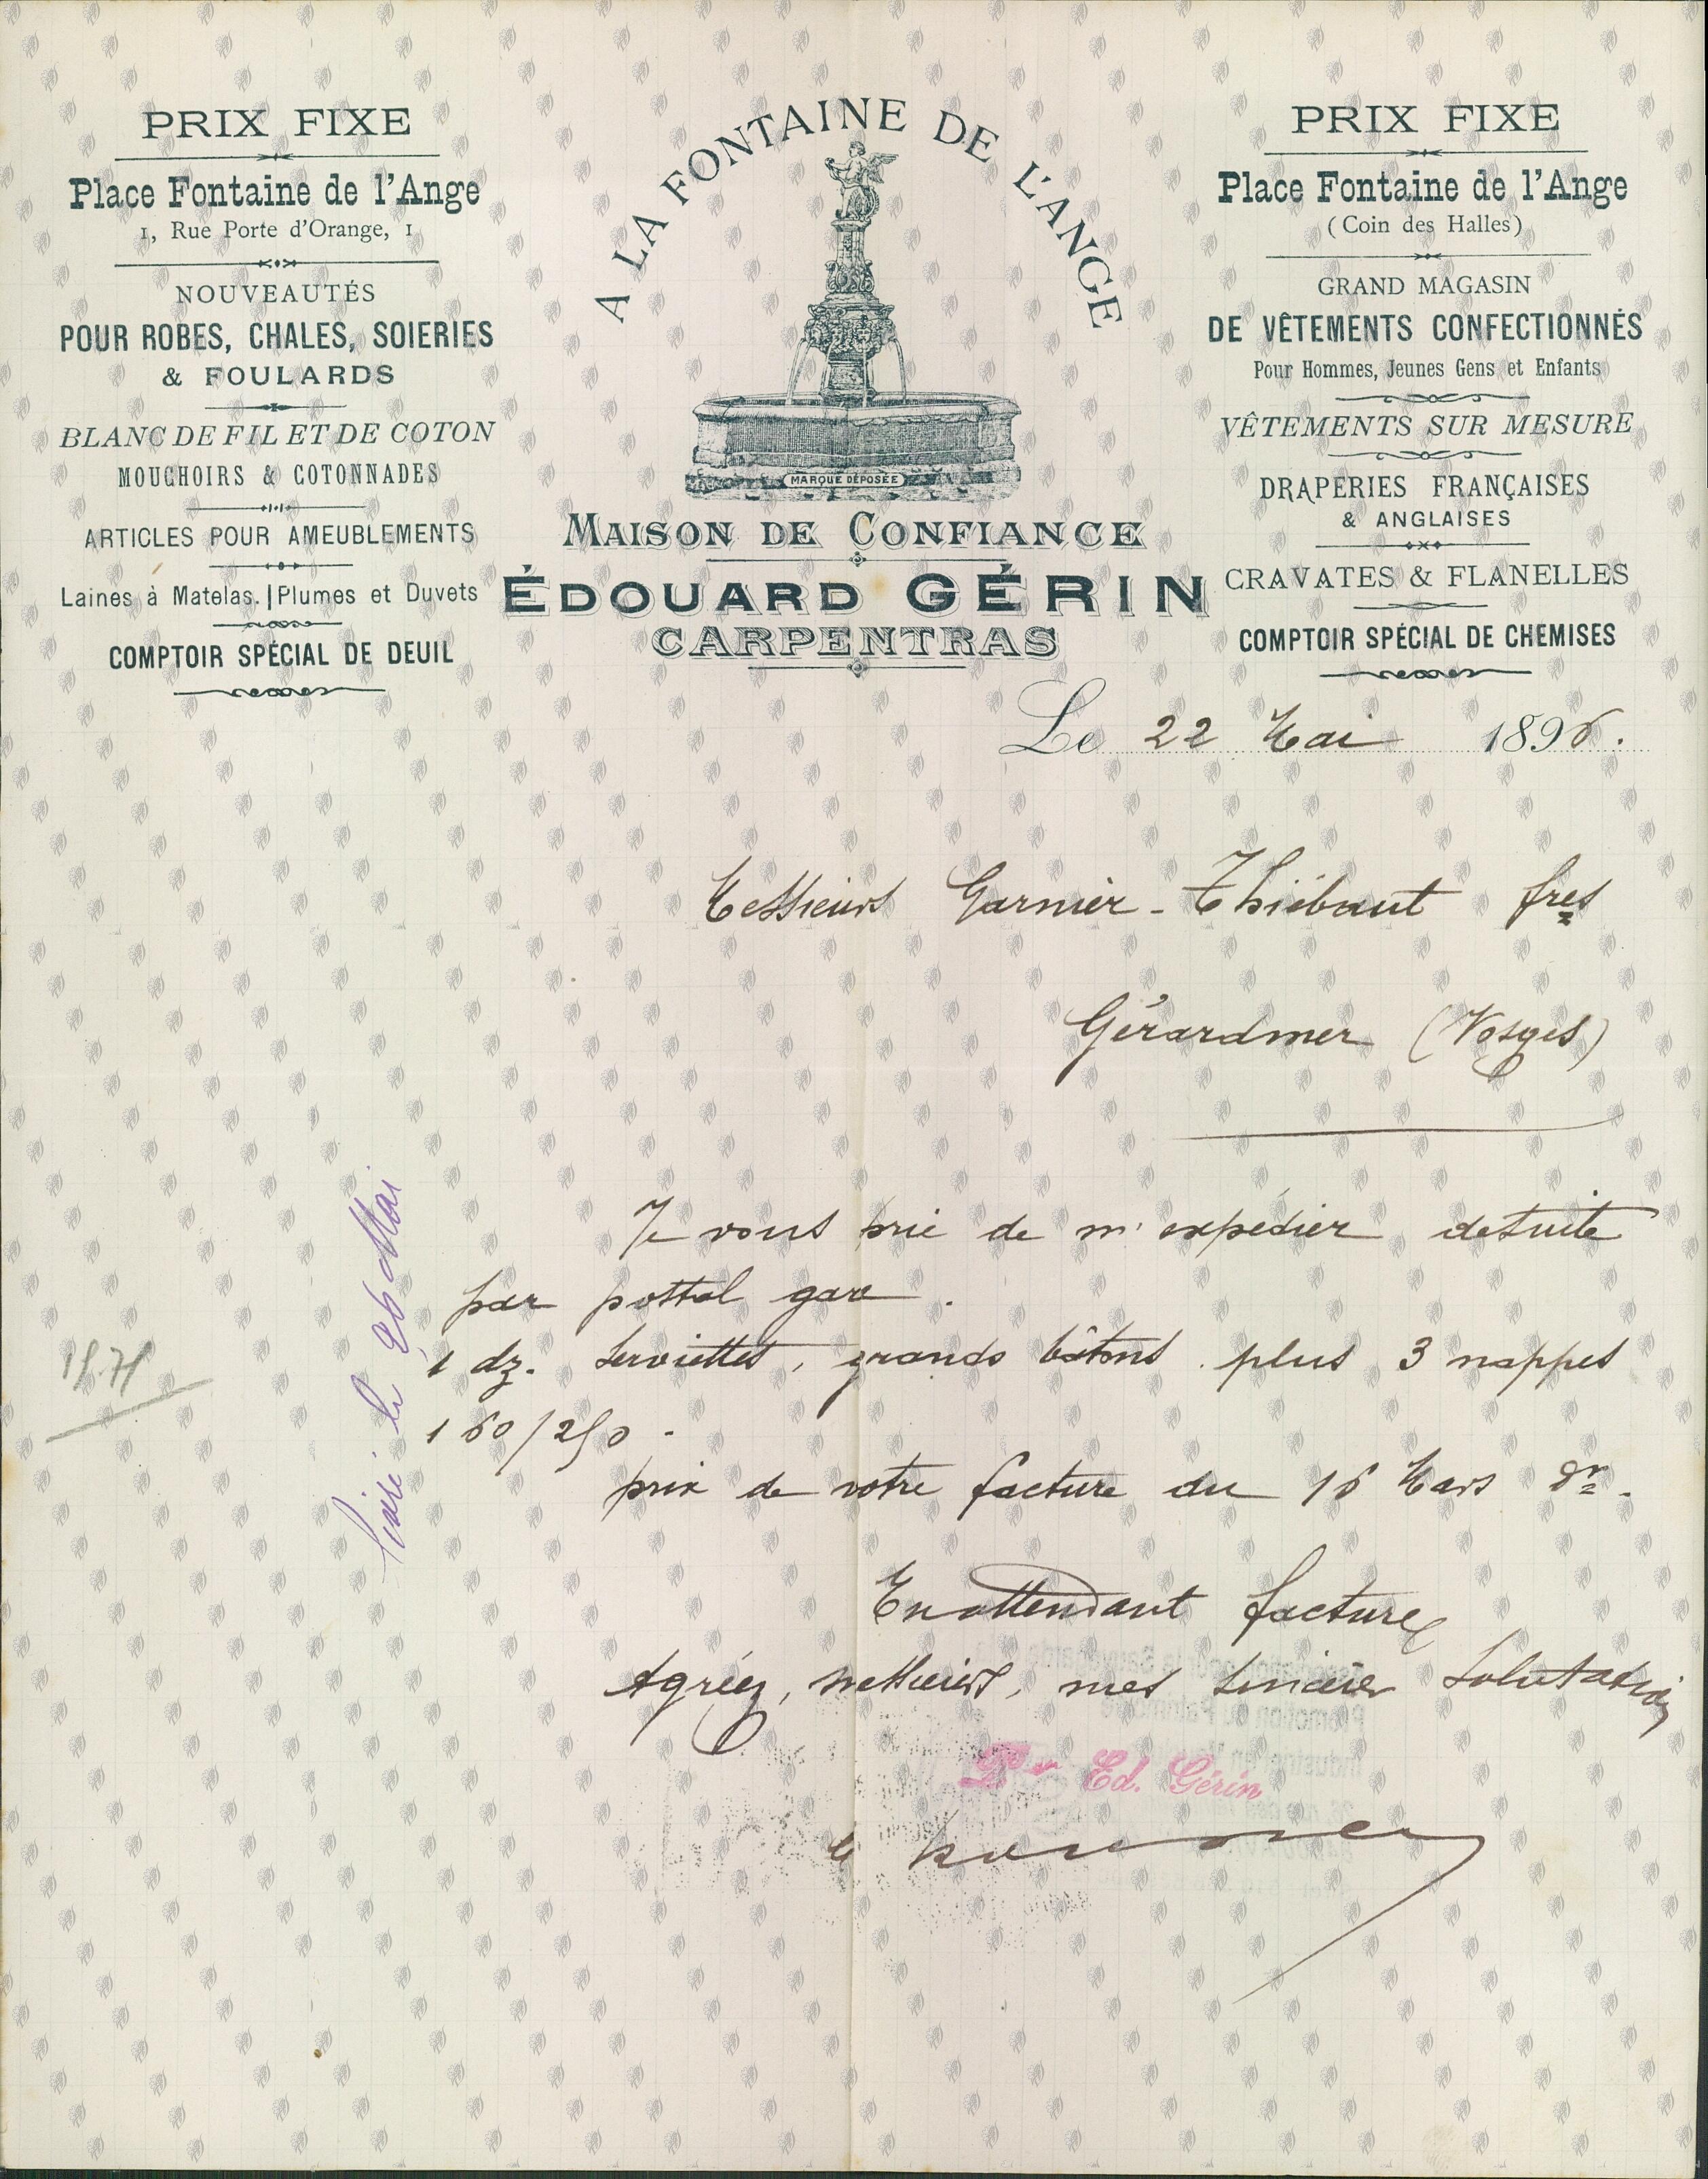 PRIX FIXE
Place Fontaine de l'Ange
1, Rue Porte d'Orange, 1
NOUVEAUTÉS
POUR ROBES, CHALES, SOIERIES
& FOULARDS
BLANC DE FIL ET DE COTON
MOUCHOIRS & COTONNADES
ARTICLES POUR AMEUBLEMENTS
Laines à Matelas. | Plumes et Duvets
COMPTOIR SPÉCIAL DE DEUIL
A LA FONTAINE DE L'ANGE
MARQUE DÉPOSÉE
MAISON DE CONFIANCE
ÉDOUARD GÉRIN
CARPENTRAS
PRIX FIXE
Place Fontaine de l'Ange
(Coin des Halles)
GRAND MAGASIN
DE VÊTEMENTS CONFECTIONNÉS
Pour Hommes, Jeunes Gens et Enfants
VÊTEMENTS SUR MESURE
DRAPERIES FRANÇAISES
& ANGLAISES
CRAVATES & FLANELLES
COMPTOIR SPÉCIAL DE CHEMISES
Le 22 Mai 1896.
Messieurs Garnier-Thiébaut fres
Gérardmer (Vosges)
Je vous prie de m'expédier desuite
par postal gare.
1 dz. serviettes, grands bâtons plus 3 nappes
160/250 -
prix de votre facture du 16 Mars dr.
En attendant facture
Agréez, messieurs, mes sincères salutations
Pr Ed. Gérin
le 26 Mai